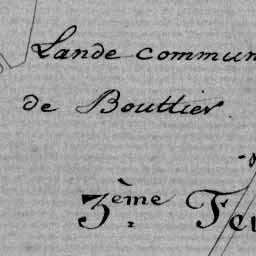 Lande commun
de Bouttier
3ème Feu